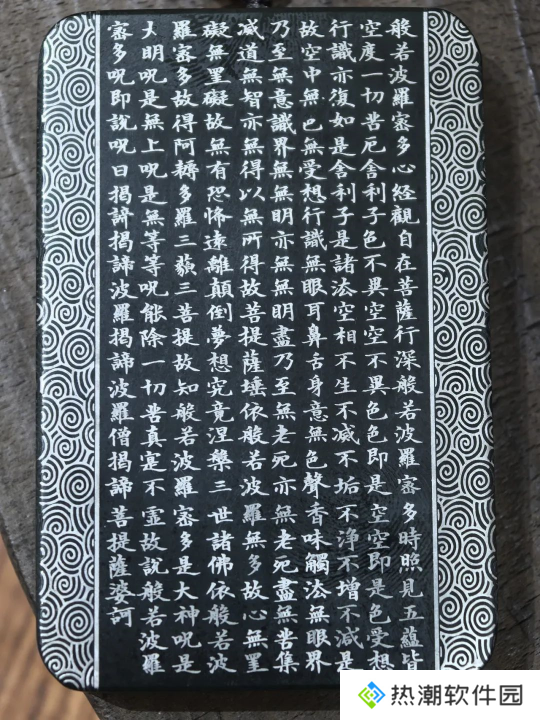 般若波羅蜜多心經觀自在菩薩行深般若波羅蜜多時照見五蘊皆
空度一切苦厄舍利子色不異空空不異色色即是空空即是色受想
行識亦復如是舍利子是諸法空相不生不滅不垢不淨不增不減是
故空中無色無受想行識無眼耳鼻舌身意無色聲香味觸法無眼界
乃至無意識界無無明亦無無明盡乃至無老死亦無老死盡無苦集
滅道無智亦無得以無所得故菩提薩埵依般若波羅無多故心無罣
礙無罣礙故無有恐怖遠離顛倒夢想究竟涅槃三世諸佛依般若波
羅蜜多故得阿耨多羅三藐三菩提故知般若波羅蜜多是大神呪是
大明呪是無上呪是無等等呪能除一切苦真寔不虛故說般若波羅
蜜多呪即說呪曰揭諦揭諦波羅揭諦波羅僧揭諦菩提薩婆訶
热潮软件园